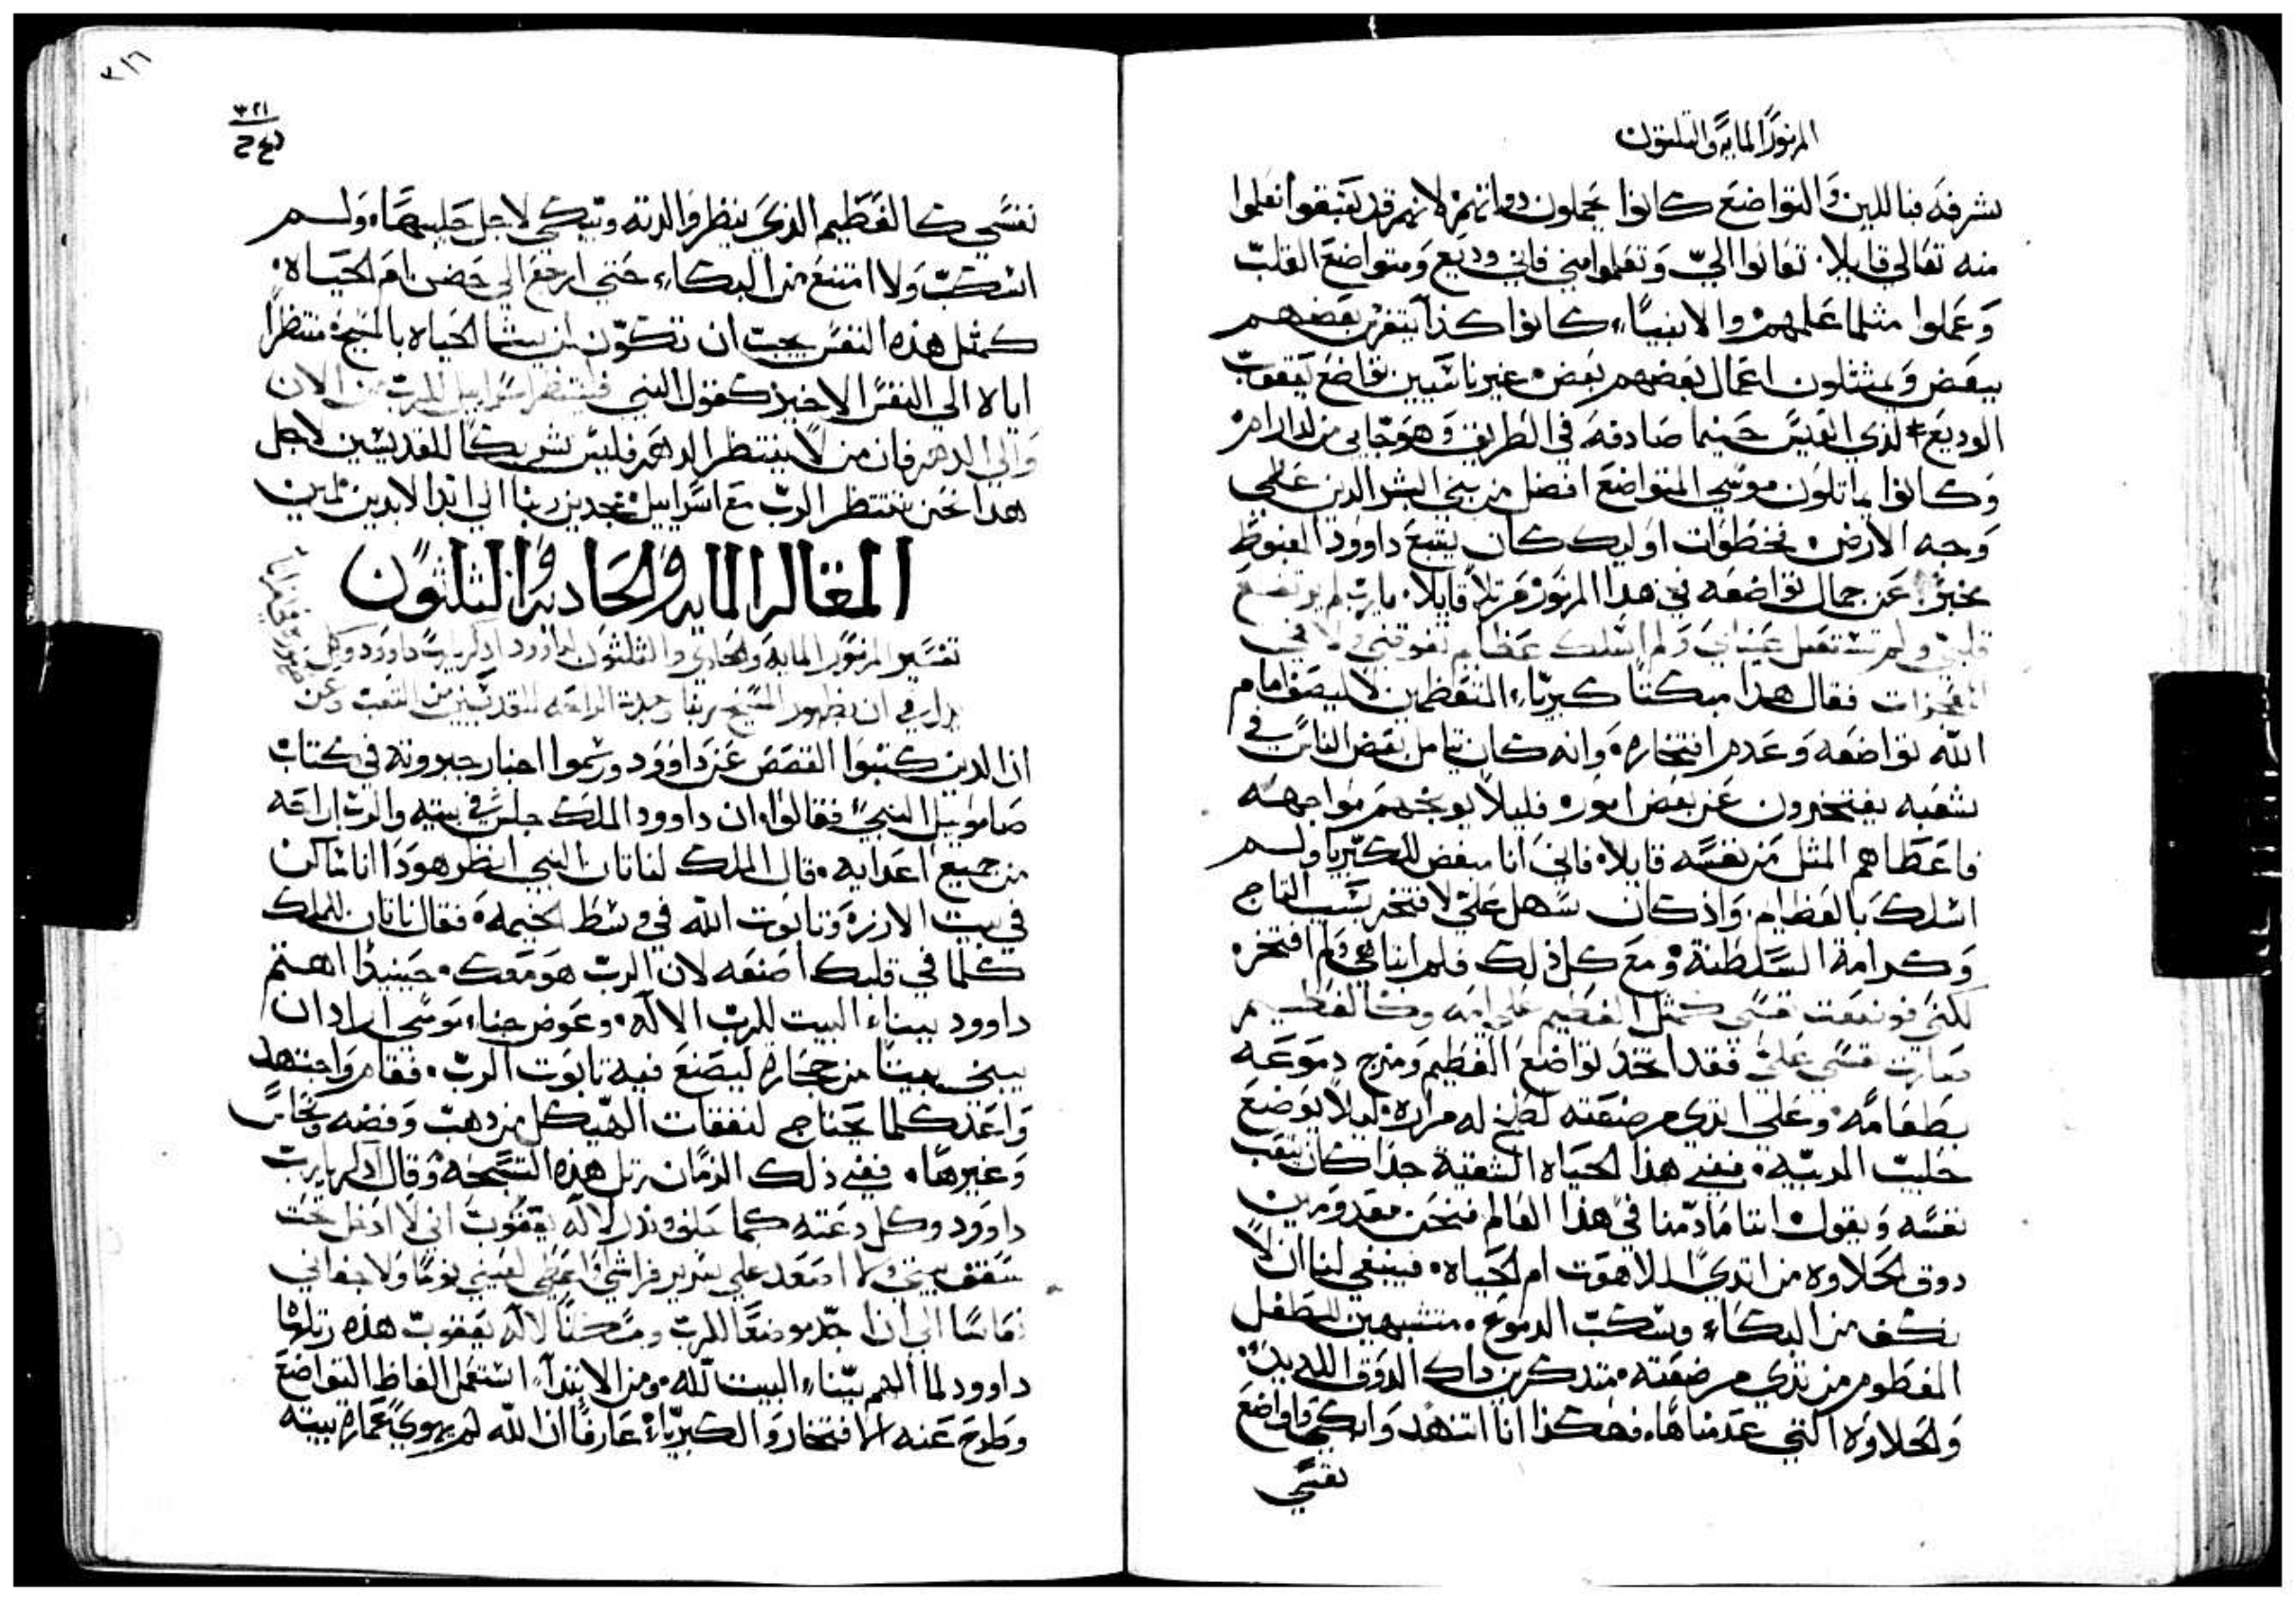 المزمور الماية والثلثون
بشرفه فبالليين والتواضع كانوا يحملون دواتهم لانهم قد يقبقوا تعلموا
منه تعالي قايلا. تعالوا اليّ وتعلموا مني فاني وديع ومتواضع القلب
وعملوا مثلما علمهم والانبياء كانوا كذا يتفرس بعضهم
ببعض ويمتثلون اعمال بعضهم بعض غير ناسيين تواضع يعقوب
الوديع الذي لعيسَ حينما صادفه في الطريق وهو جايي من اداارام
وكانوا يماتلون موسي المتواضع افضل من بني البشر الدين علي
وجه الارض. بخطوات اوليك كان يتبع داوود المغبوط
مخبرًا عن جمال تواضعه في هذا المزمور مرتلاً قايلا. يارب لم يرتفع
قلبي ولم تستعل عيناي ولم اسلك عظايم تفوقني ولا في
المعجزات فقال هذا مبكتًا كبرياء المتعظمين لا ليصف امام
الله تواضعه وعدم افتخاره وانه كان تامل بعض الناس في
شعبه يفتخرون عن بعض امور فليلا يوبخهم مواجهه
فاعطاهم المثل من نفسه قايلا فاني انا مبغض للكبريا ولم
اسلك بالعظايم. واذ كان سهل علي لافتخر بسبب التاج
وكرامة السلطنة ومع كل ذلك فلم اتباهي ولم افتخر
لكني فوضعت نفسي كمثل الفطيم علي امه وكالفطيم
صارت نفسي علي فقد اتخذ تواضع الفطيم ومزج دموعه
بطعامه. وعلي ثدي مرضعته لطخ له مراره ليلا يوضع
حليب المربيه. ففي هذا الحياه الشقية جدا كان يتعب
نفسه ويقول اننا مادمنا في هذا العالم فنحن معدومين
دوق الحلاوه من ثدي اللاهوت ام الحياه. فينبغي لنا ان لا
نكف من البكاء وسكب الدموع. متشبهين للطفل
المفطوم من ثدي مرضعته متدكرين داك الدوق اللذيذ
والحلاوه التي عدمناها. فهكذا انا اتنهد وابكي واواضع
نفسي
٣١٦
٣٢١
نفسي كالفطيم الذي ينظر والدته ويبكي لاجل حليبها. ولم
اسكت ولا امتنع من البكاء حتي ارجع الي حضن ام الحياه.
كمثل هذه النفس يجب ان تكون لمن يشا الحياه بالمسيح منتظرًا
اياه الي النفس الاخير كقول النبي فلينتظر اسراييل للرب من الان
والي الدهر فان من لا ينتظر الدهر فليس شريكًا للقديسين لاجل
هذا نحن ننتظر الرب مع اسراييل ممجدين ربنا الي ابد الابدين امين
المقاله المايه والحاديه والثلثون
تفسير المزمور المايه والحادي والثلثون لداوود اذكر يارب داوود وكل
في ان بظهور المسيح ربنا الراحه للقديسين من التعب وعن
ان الدين كتبوا القصص عن داوود ورسموا اخبار جبروته في كتاب
صاموييل النبي فقالوا ان داوود الملك جلس في بيته والرب اراحه
من جميع اعدايه. قال الملك لناتان النبي انظر هوذا انا ساكن
في بيت الارزه وتابوت الله في وسط الخيمه فقال ناتان للملك
كلما في قلبك اصنعه لان الرب هو معك. حينيذا اهتم
داوود ببناء البيت للرب الاله. وعوض خباء موسي اراد ان
يبني بيتًا من حجاره ليصنع فيه تابوت الرب. فقام واجتهد
واعد كلما يحتاج لنفقات الهيكل من ذهب وفضه ونحاس
وغيرها. ففي ذلك الزمان رتل هذه التسبحة وقال اذكر يارب
داوود وكل دعته كما حلف ونذر لاله يعقوب اني لا ادخل تحت
سقف بيتي ولا اصعد علي سرير فراشي ولا اعطي لعيني نومًا ولا جفاني
نعاسًا الي ان اجد موضعًا للرب ومسكنًا لاله يعقوب هذه رتلها
داوود لما الهم ببناء البيت لله. ومن الابتداء استعمل الفاظ التواضع
وطرح عنه الافتخار والكبرياء عارفًا ان الله لم يهوي عمارة بيته